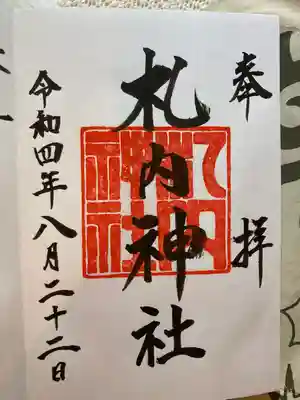 奉拝
札内神社
札内
神社
令和四年八月二十二日